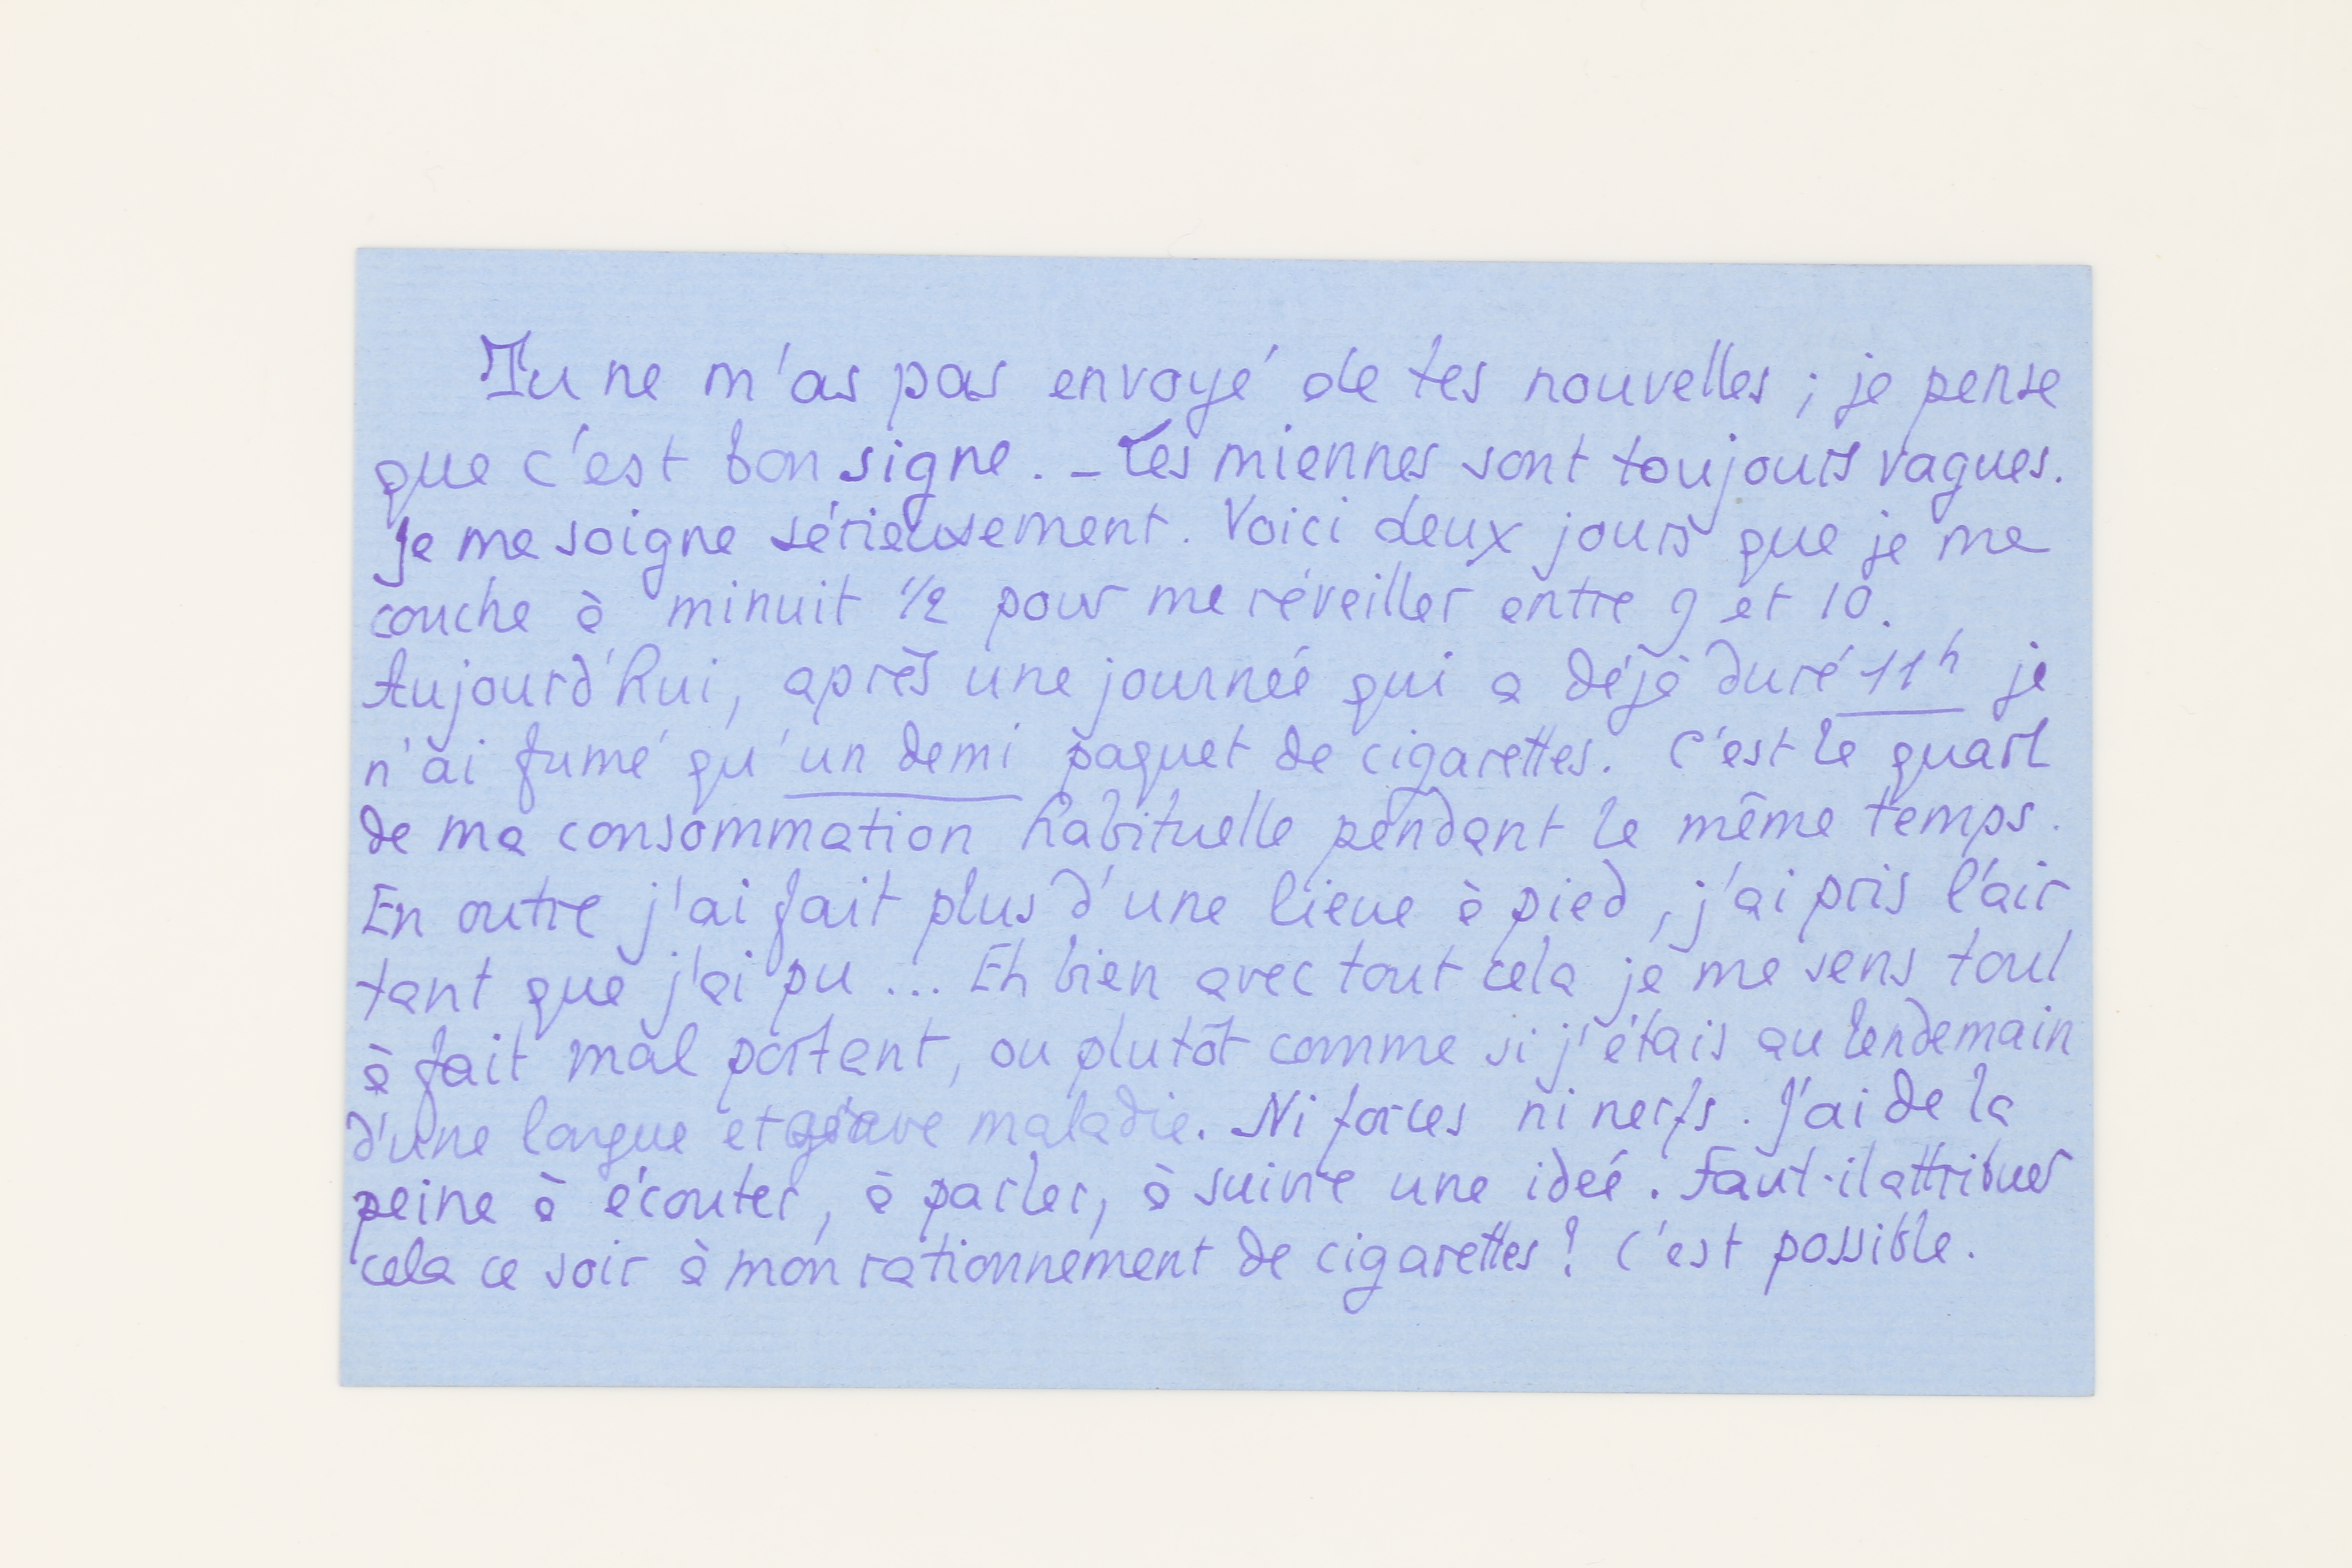 Tu ne m'as pas envoyé de tes nouvelles ; je pense
que c'est bon signe. - Les miennes sont toujours vagues.
Je me soigne sérieusement. Voici deux jours que je me
couche à minuit 1/2 pour me réveiller entre 9 et 10.
Aujourd'hui, après une journée qui a déjà duré 11h je
n'ai fumé qu'un demi paquet de cigarettes. C'est le quart
de ma consommation habituelle pendant le même temps.
En outre j'ai fait plus d'une lieue à pied, j'ai pris l'air
tant que j'ai pu ... Eh bien avec tout cela je me sens tout
à fait mal portant, ou plutôt comme si j'étais au lendemain
d'une longue et grave maladie. Ni forces ni nerfs. J'ai de la
peine à écouter, à parler, à suivre une idée. Faut-il attribuer
cela ce soir à mon rationnement de cigarettes ? C'est possible.